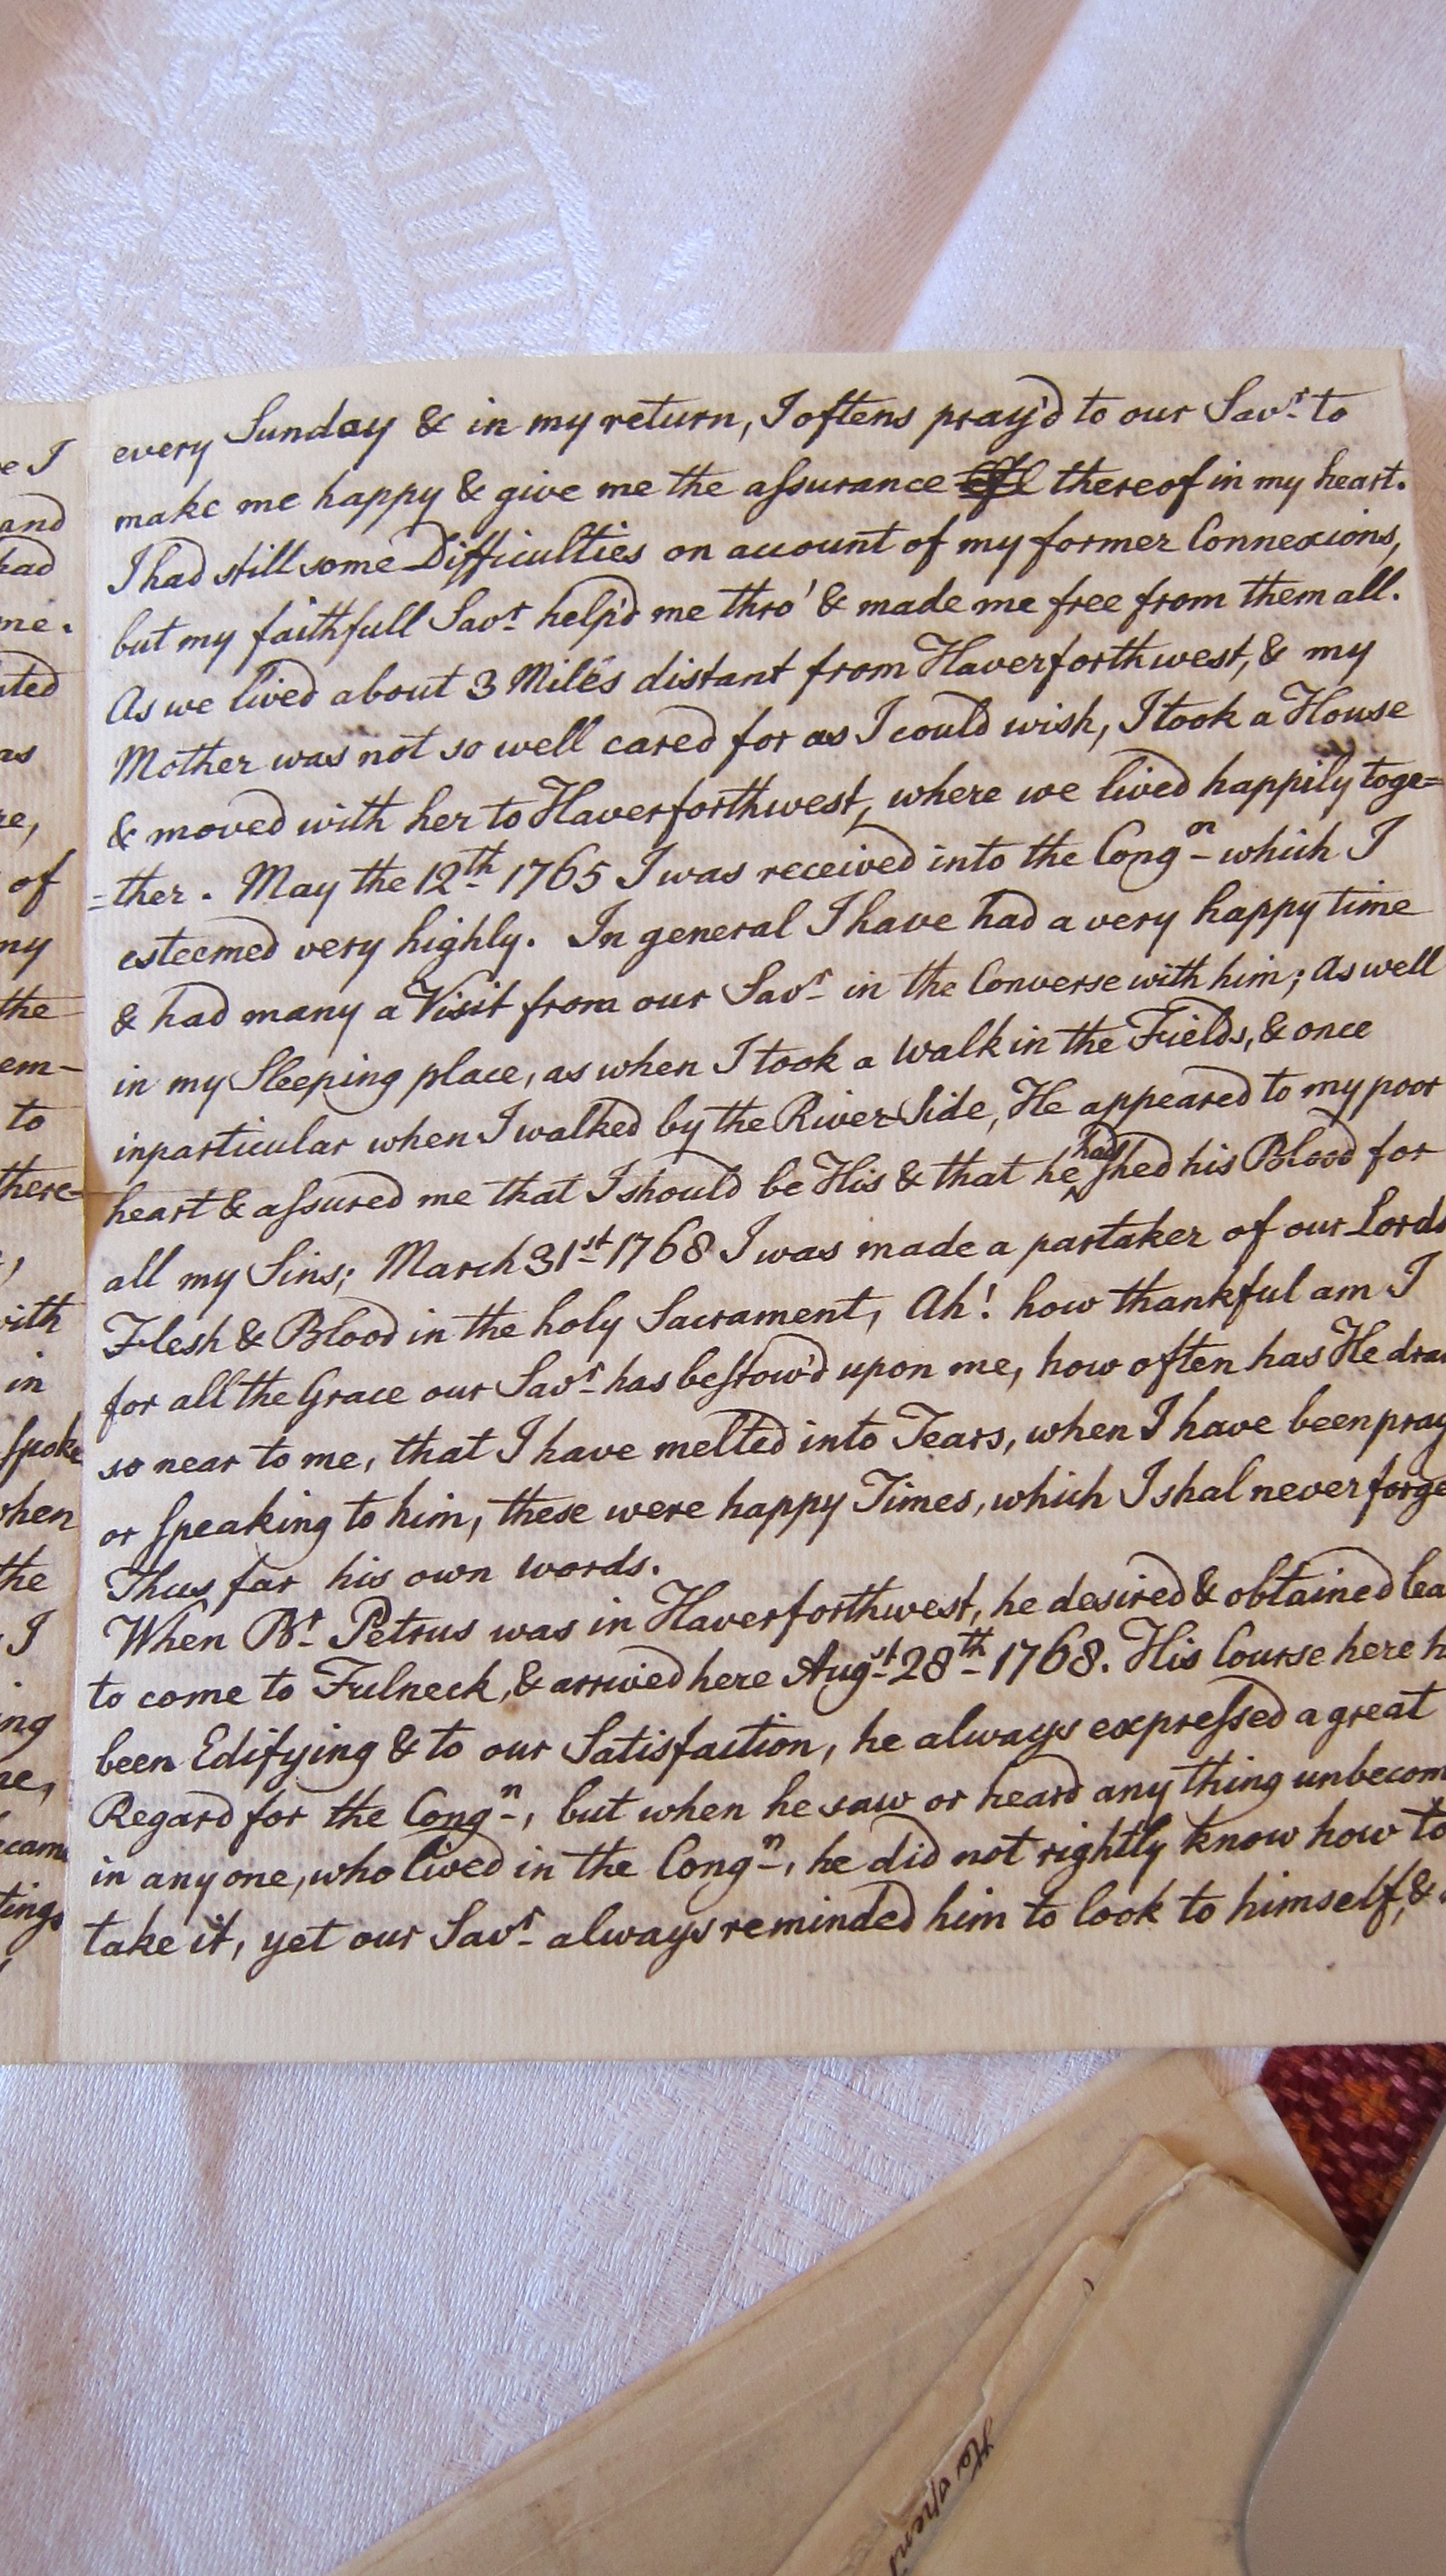 every Sunday & in my return, I oftens pray'd to our Savr. to
make me happy & give me the assurance thereof in my heart.
I had still some Difficulties on account of my former Connexions,
but my faithfull Savr. help'd me thro' & made me free from them all.
As we lived about 3 Miles distant from Haverforthwest, & my
Mother was not so well cared for as I could wish, I took a House
& moved with her to Haverforthwest, where we lived happily toge=
=ther. May the 12th. 1765 I was received into the Congon. which I
esteemed very highly. In general I have had a very happy time
& had many a Visit from our Savr. in the Converse with him; As well
in my Sleeping place, as when I took a walk in the Fields, & once
inparticular when I walked by the River Side, He appeared to my poor
heart & assured me that I should be His & that he had shed his Blood for
all my Sins; March 31st. 1768 I was made a partaker of our Lords
Flesh & Blood in the holy Sacrament, Ah! how thankful am I
for all the Grace our Savr. has bestow'd upon me, how often has He dra
so near to me, that I have melted into Tears, when I have been pray
or speaking to him, these were happy Times, which I shal never forge
Thus far his own words.
When Br. Petrus was in Haverforthwest, he desired & obtained lea
to come to Fulneck, & arrived here Augst. 28th. 1768. His Course here h
been Edifying & to our Satisfaction, he always expressed a great
Regard for the Congn., but when he saw or heard any thing unbecom
in any one, who lived in the Congn., he did not rightly know how to
take it, yet our Savr. always reminded him to look to himself, &
e I
and
had
me.
ted
as
re,
of
my
the
em-
to
there=
with
in
spoke
when
the
I
ing
ne,
came
tings